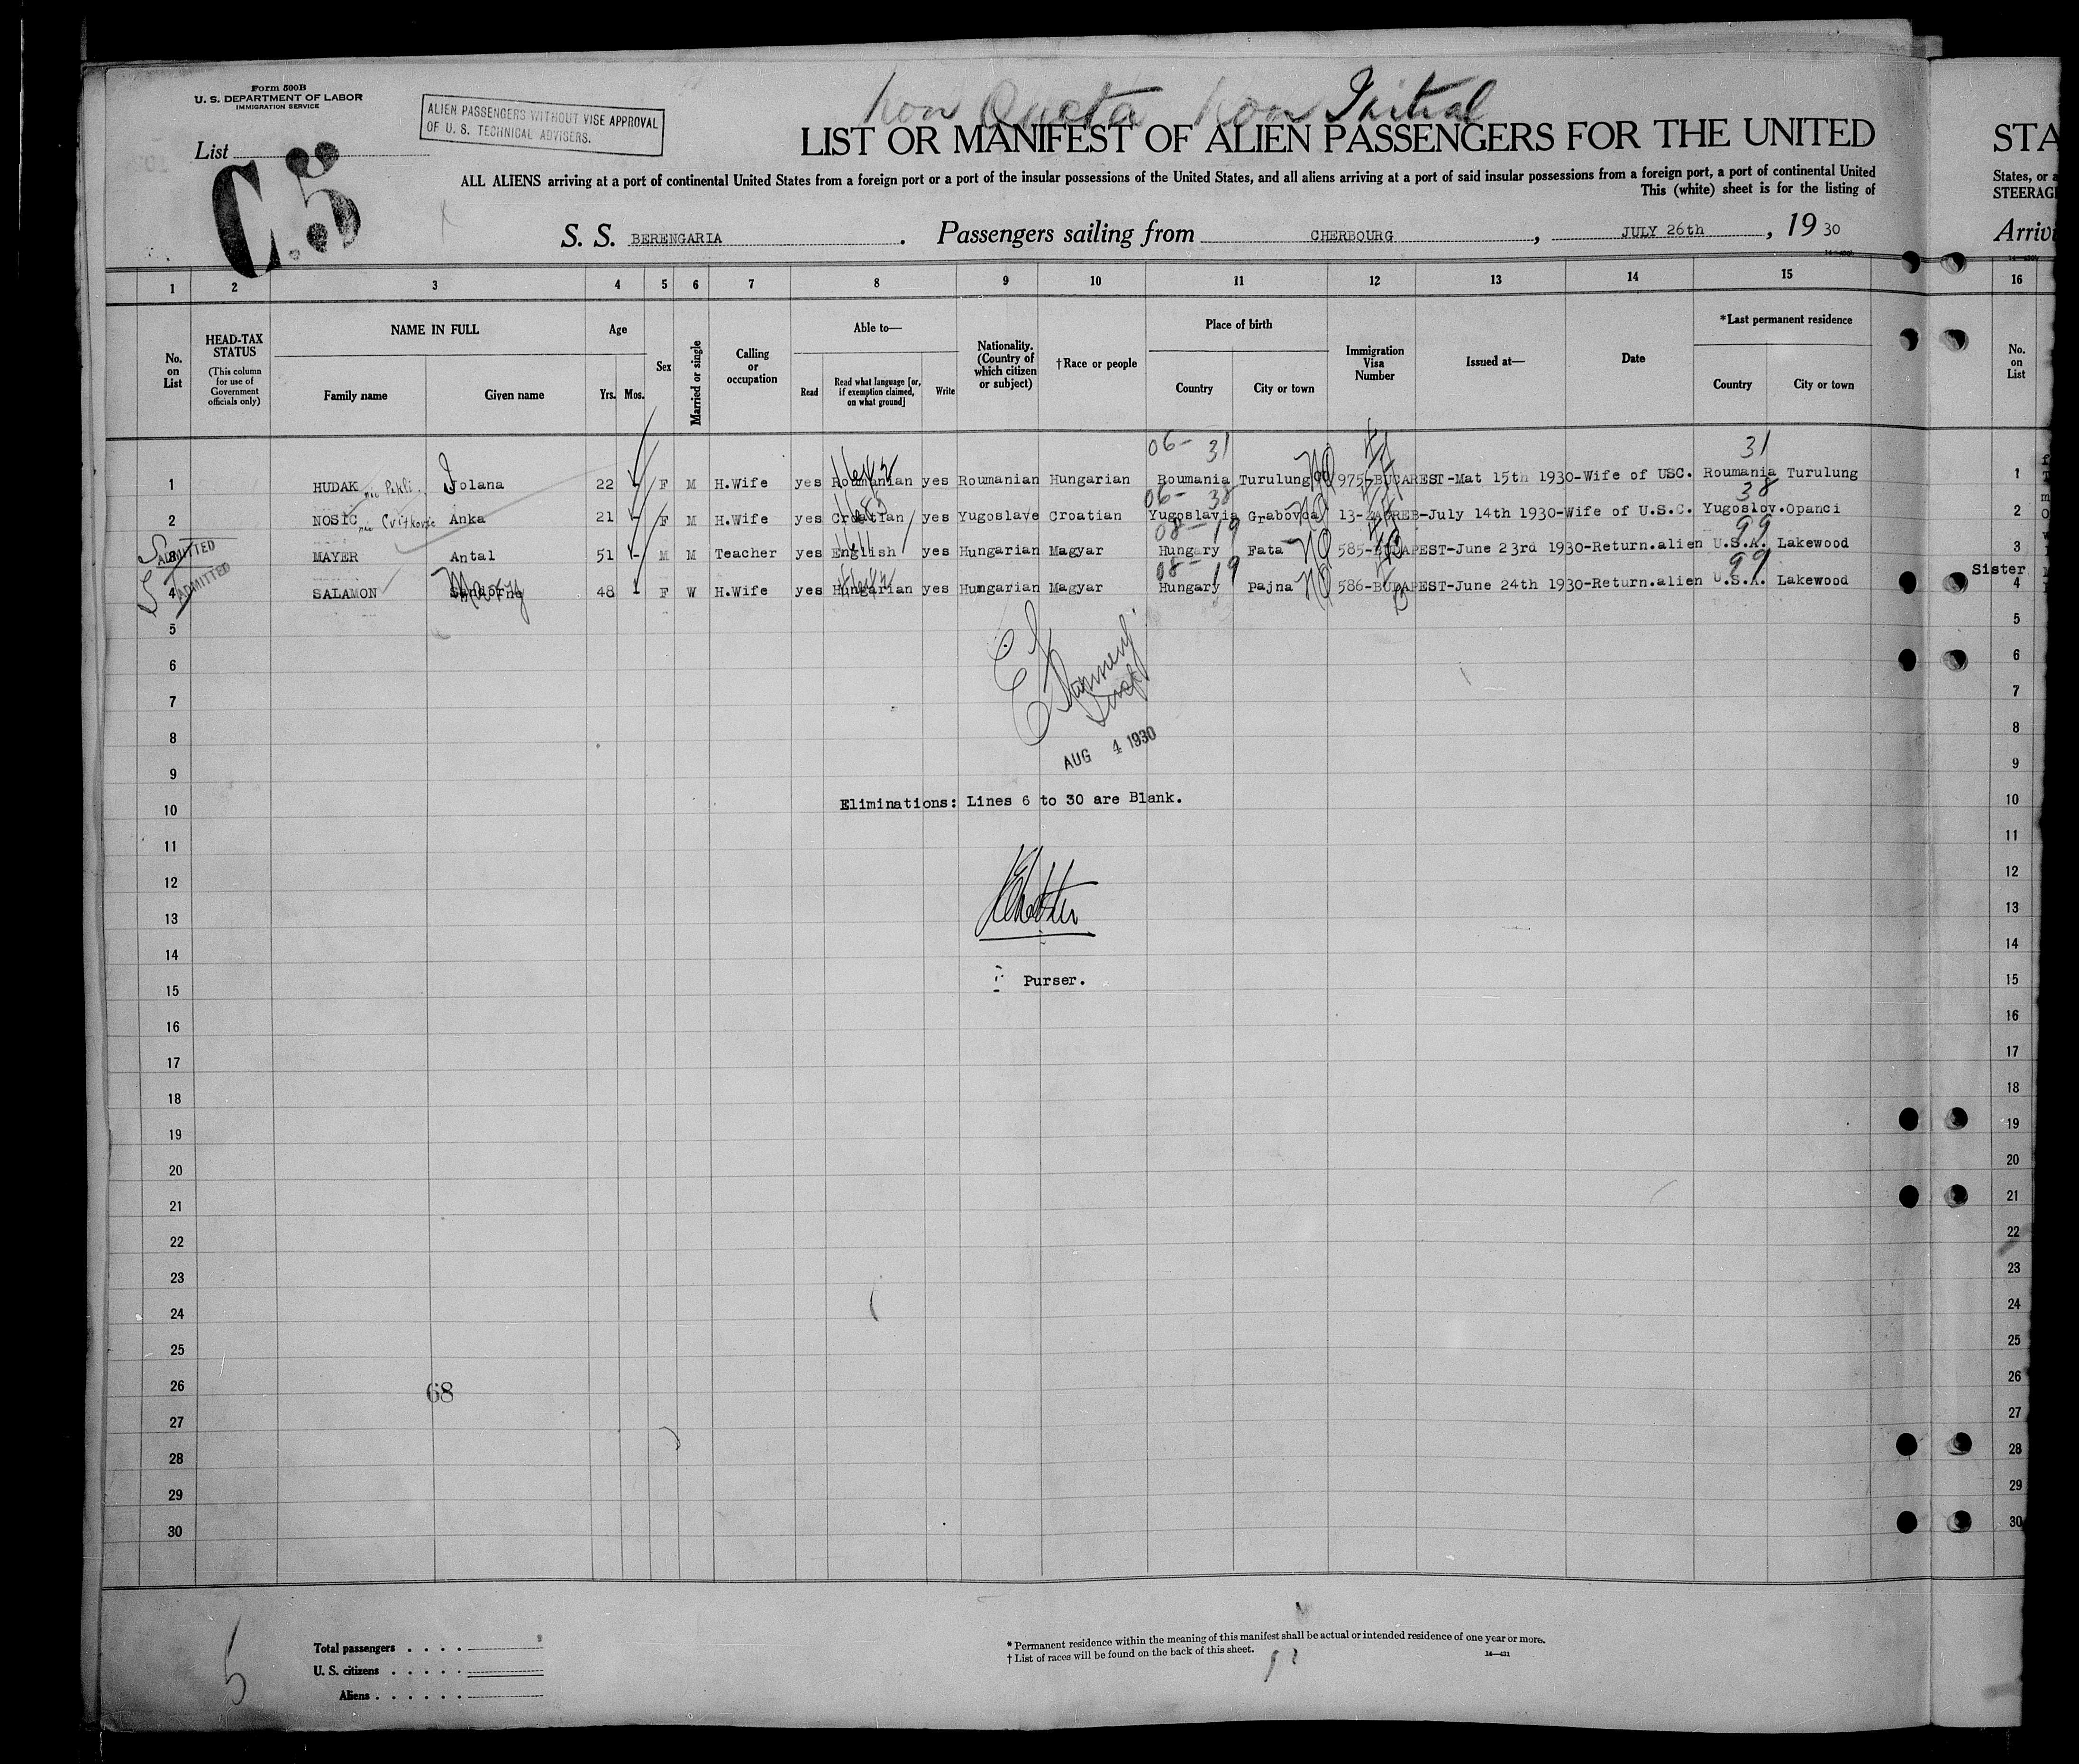 Form 500B
U. S. DEPARTMENT OF LABOR
IMMIGRATION SERVICE
ALIEN PASSENGERS WITHOUT VISE APPROVAL
OF U. S. TECHNICAL ADVISERS.
List
C.5
Non Quota Non Initial
LIST OR MANIFEST OF ALIEN PASSENGERS FOR THE UNITED
ALL ALIENS arriving at a port of continental United States from a foreign port or a port of the insular possessions of the United States, and all aliens arriving at a port of said insular possessions from a foreign port, a port of continental United
This (white) sheet is for the listing of
S. S. BERENGARIA . Passengers sailing from CHERBOURG , JULY 26th , 19 30
STA
States, or a
STEERAG
Arrivi
1 2 3 4 5 6 7 8 9 10 11 12 13 14 15 16
No. on List
HEAD-TAX STATUS (This column for use of Government officials only)
NAME IN FULL Family name Given name
Age Yrs. Mos.
Sex
Married or single
Calling or occupation
Able to— Read Read what language [or, if exemption claimed, on what ground] Write
Nationality. (Country of which citizen or subject)
†Race or people
Place of birth Country City or town
Immigration Visa Number
Issued at—
Date
*Last permanent residence Country City or town
No. on List
06- 31 31
1 HUDAK Jolana 22 - F M H.Wife yes Roumanian yes Roumanian Hungarian Roumania Turulung 975-BUCAREST-Mat 15th 1930-Wife of USC. Roumania Turulung 1
06- 38 38
2 NOSIC Anka 21 - F M H.Wife yes Croatian yes Yugoslave Croatian Yugoslavia Grabovca 13-ZAGREB-July 14th 1930-Wife of U.S.C. Yugoslov. Opanci 2
08- 19 99
ADMITTED 3 MAYER Antal 51 - M M Teacher yes English yes Hungarian Magyar Hungary Fata 585-BUDAPEST-June 23rd 1930-Return.alien U.S.A. Lakewood 3
08- 19 99
Sister
ADMITTED 4 SALAMON Mary 48 - F W H.Wife yes Hungarian yes Hungarian Magyar Hungary Pajna 586-BUDAPEST-June 24th 1930-Return.alien U.S.A. Lakewood 4
5 5
6 6
7 7
8 8
AUG 4 1930
9 9
Eliminations: Lines 6 to 30 are Blank.
10 10
11 11
12 12
13 13
14 14
Purser.
15 15
16 16
17 17
18 18
19 19
20 20
21 21
22 22
23 23
24 24
25 25
26 68 26
27 27
28 28
29 29
30 30
5
Total passengers
U. S. citizens
Aliens
* Permanent residence within the meaning of this manifest shall be actual or intended residence of one year or more.
† List of races will be found on the back of this sheet.